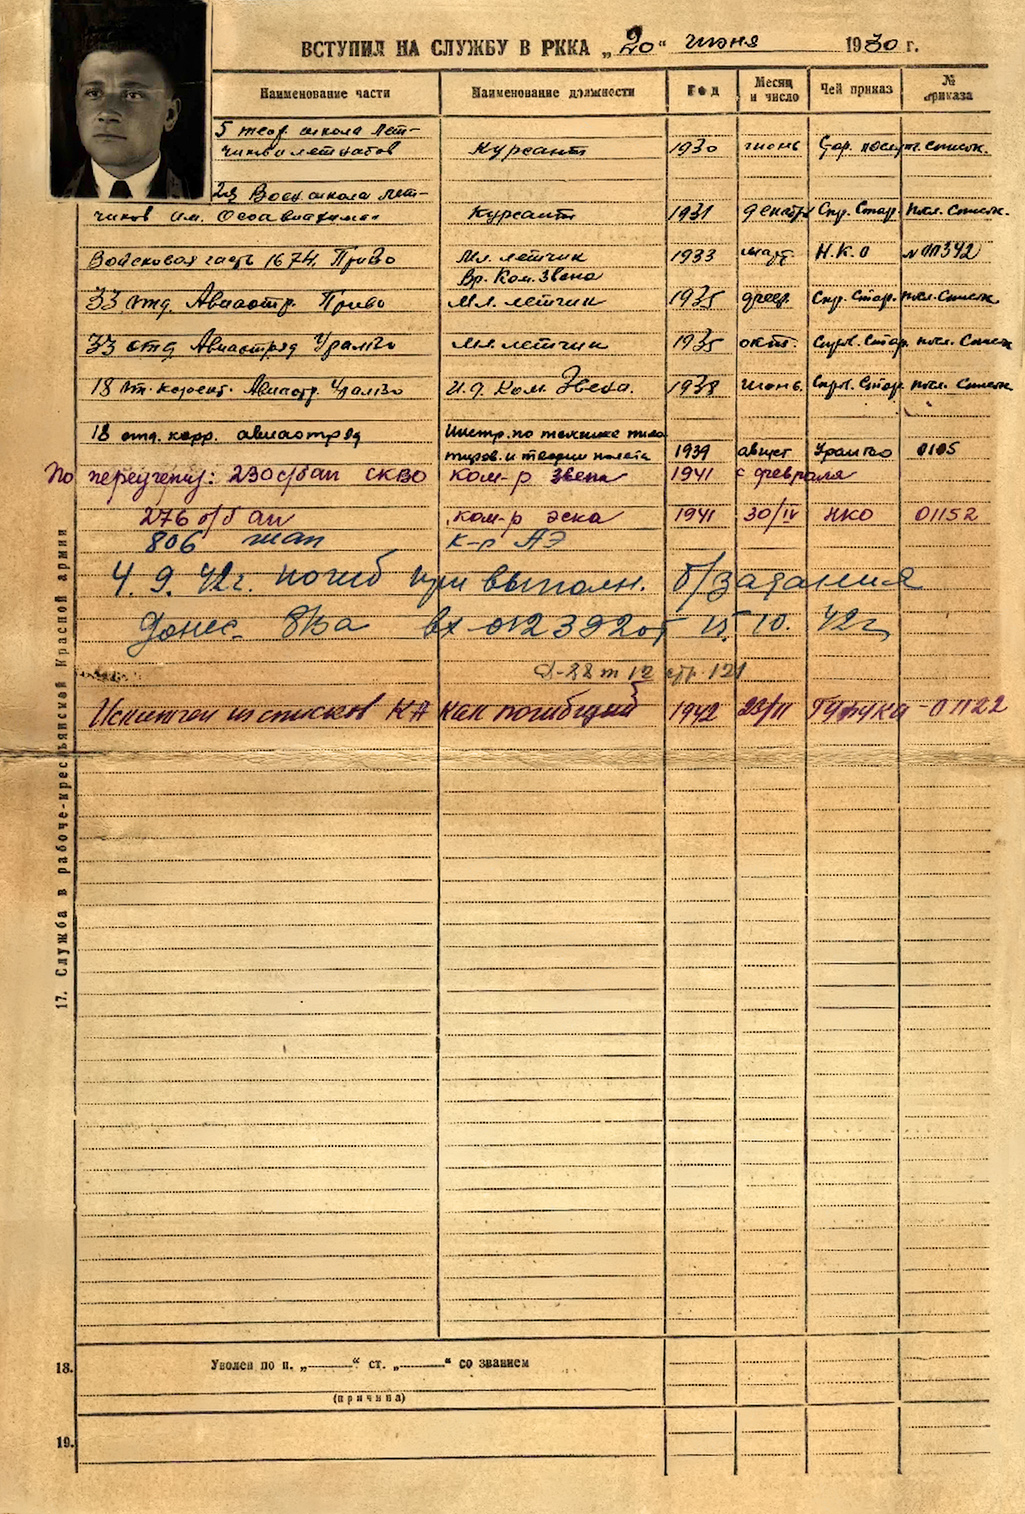 ВСТУПИЛ НА СЛУЖБУ В РККА „20“ июня 1930 г.
Наименование части Наименование должности Год Месяц и число Чей приказ № приказа
5 теор. школа Лет-
чиков и летнабов Курсант 1930 июнь Сор. послуж. список.
2я Воен. школа лет-
чиков им. Осоавиахима Курсант 1931 Спр. Стар. посл. Список.
Войсковая часть 1674. ПриВо Мл. летчик 1933 март Н.К.О №00342
Вр. Ком. Звена
33 отд. Авиаотр. Приво Мл. летчик 1935 февр. Спр. Стар. посл. Список
33 отд Авиаотряд УралВо Мл. летчик 1935 окт. Стар. посл. Список
18 от. корект. Авиаотр. УралВо И.д. Ком. Звена. 1938 июнь. Стар. посл. Список
18 отд. корр. авиаотряд Инстр. по технике пило
тиров. и теории полета 1939 август УралВо 0105
По переучету: 230 с/бап СКВО ком-р звена 1941 с февраля
276 б/бап ком-р эска 1941 30/IV НКО 01152
806 шап к-р АЭ
4. 9. 42г. погиб при выполн. б/задания
Донес. 8Ва вх 012392от 15. 10. 42г
стр. 121
Исключен из списков КА как погибший 1942 23/11 01122
17. Служба в рабоче-крестьянской Красной армии
18. Уволен по п. „———“ ст. „———“ со званием
(причина)
19.